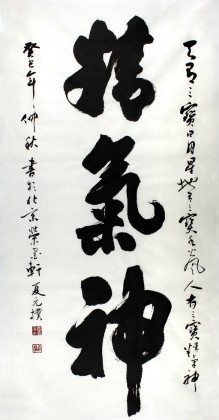 天有三寶日月星地有三寶水火風人有三寶精气神
精氣神
癸巳年仲秋書於北京榮墨軒夏元撲